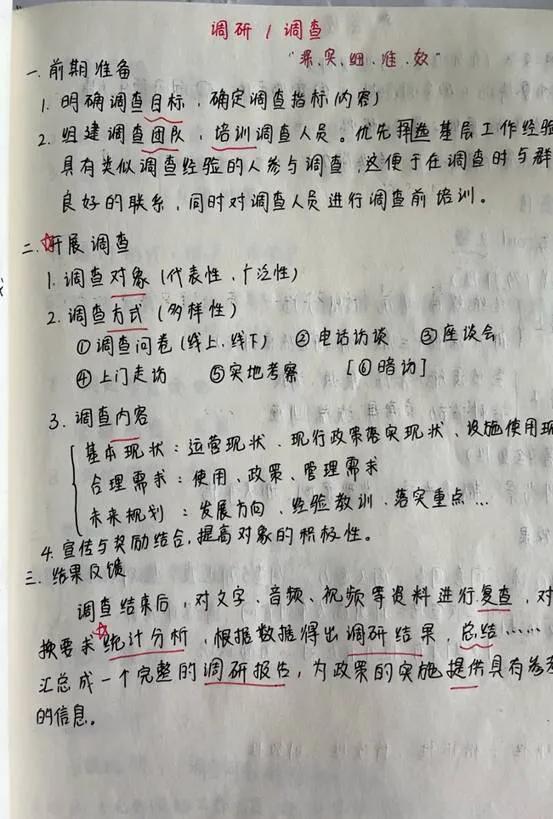 调研/调查
"深、实、细、准、效"
一.前期准备
1.明确调查目标,确定调查指标(内容)
2.组建调查团队,培训调查人员。优先挑选基层工作经验
具有类似调查经验的人参与调查,这便于在调查时与群
良好的联系,同时对调查人员进行调查前培训。
二.☆开展调查
1.调查对象(代表性、广泛性)
2.调查方式(多样性)
①调查问卷(线上、线下) ②电话访谈 ③座谈会
④上门走访 ⑤实地考察 [⑥暗访]
3.调查内容
基本现状:运营现状、现行政策落实现状、设施使用现
合理需求:使用、政策、管理需求
未来规划:发展方向、经验教训、落实重点...
4.宣传与奖励结合,提高对象的积极性。
三.结果反馈
调查结束后,对文字、音频、视频等资料进行复查,对
按要求☆统计分析,根据数据得出调研结果,总结……,
汇总成一个完整的调研报告,为政策的实施提供具有参考
的信息。